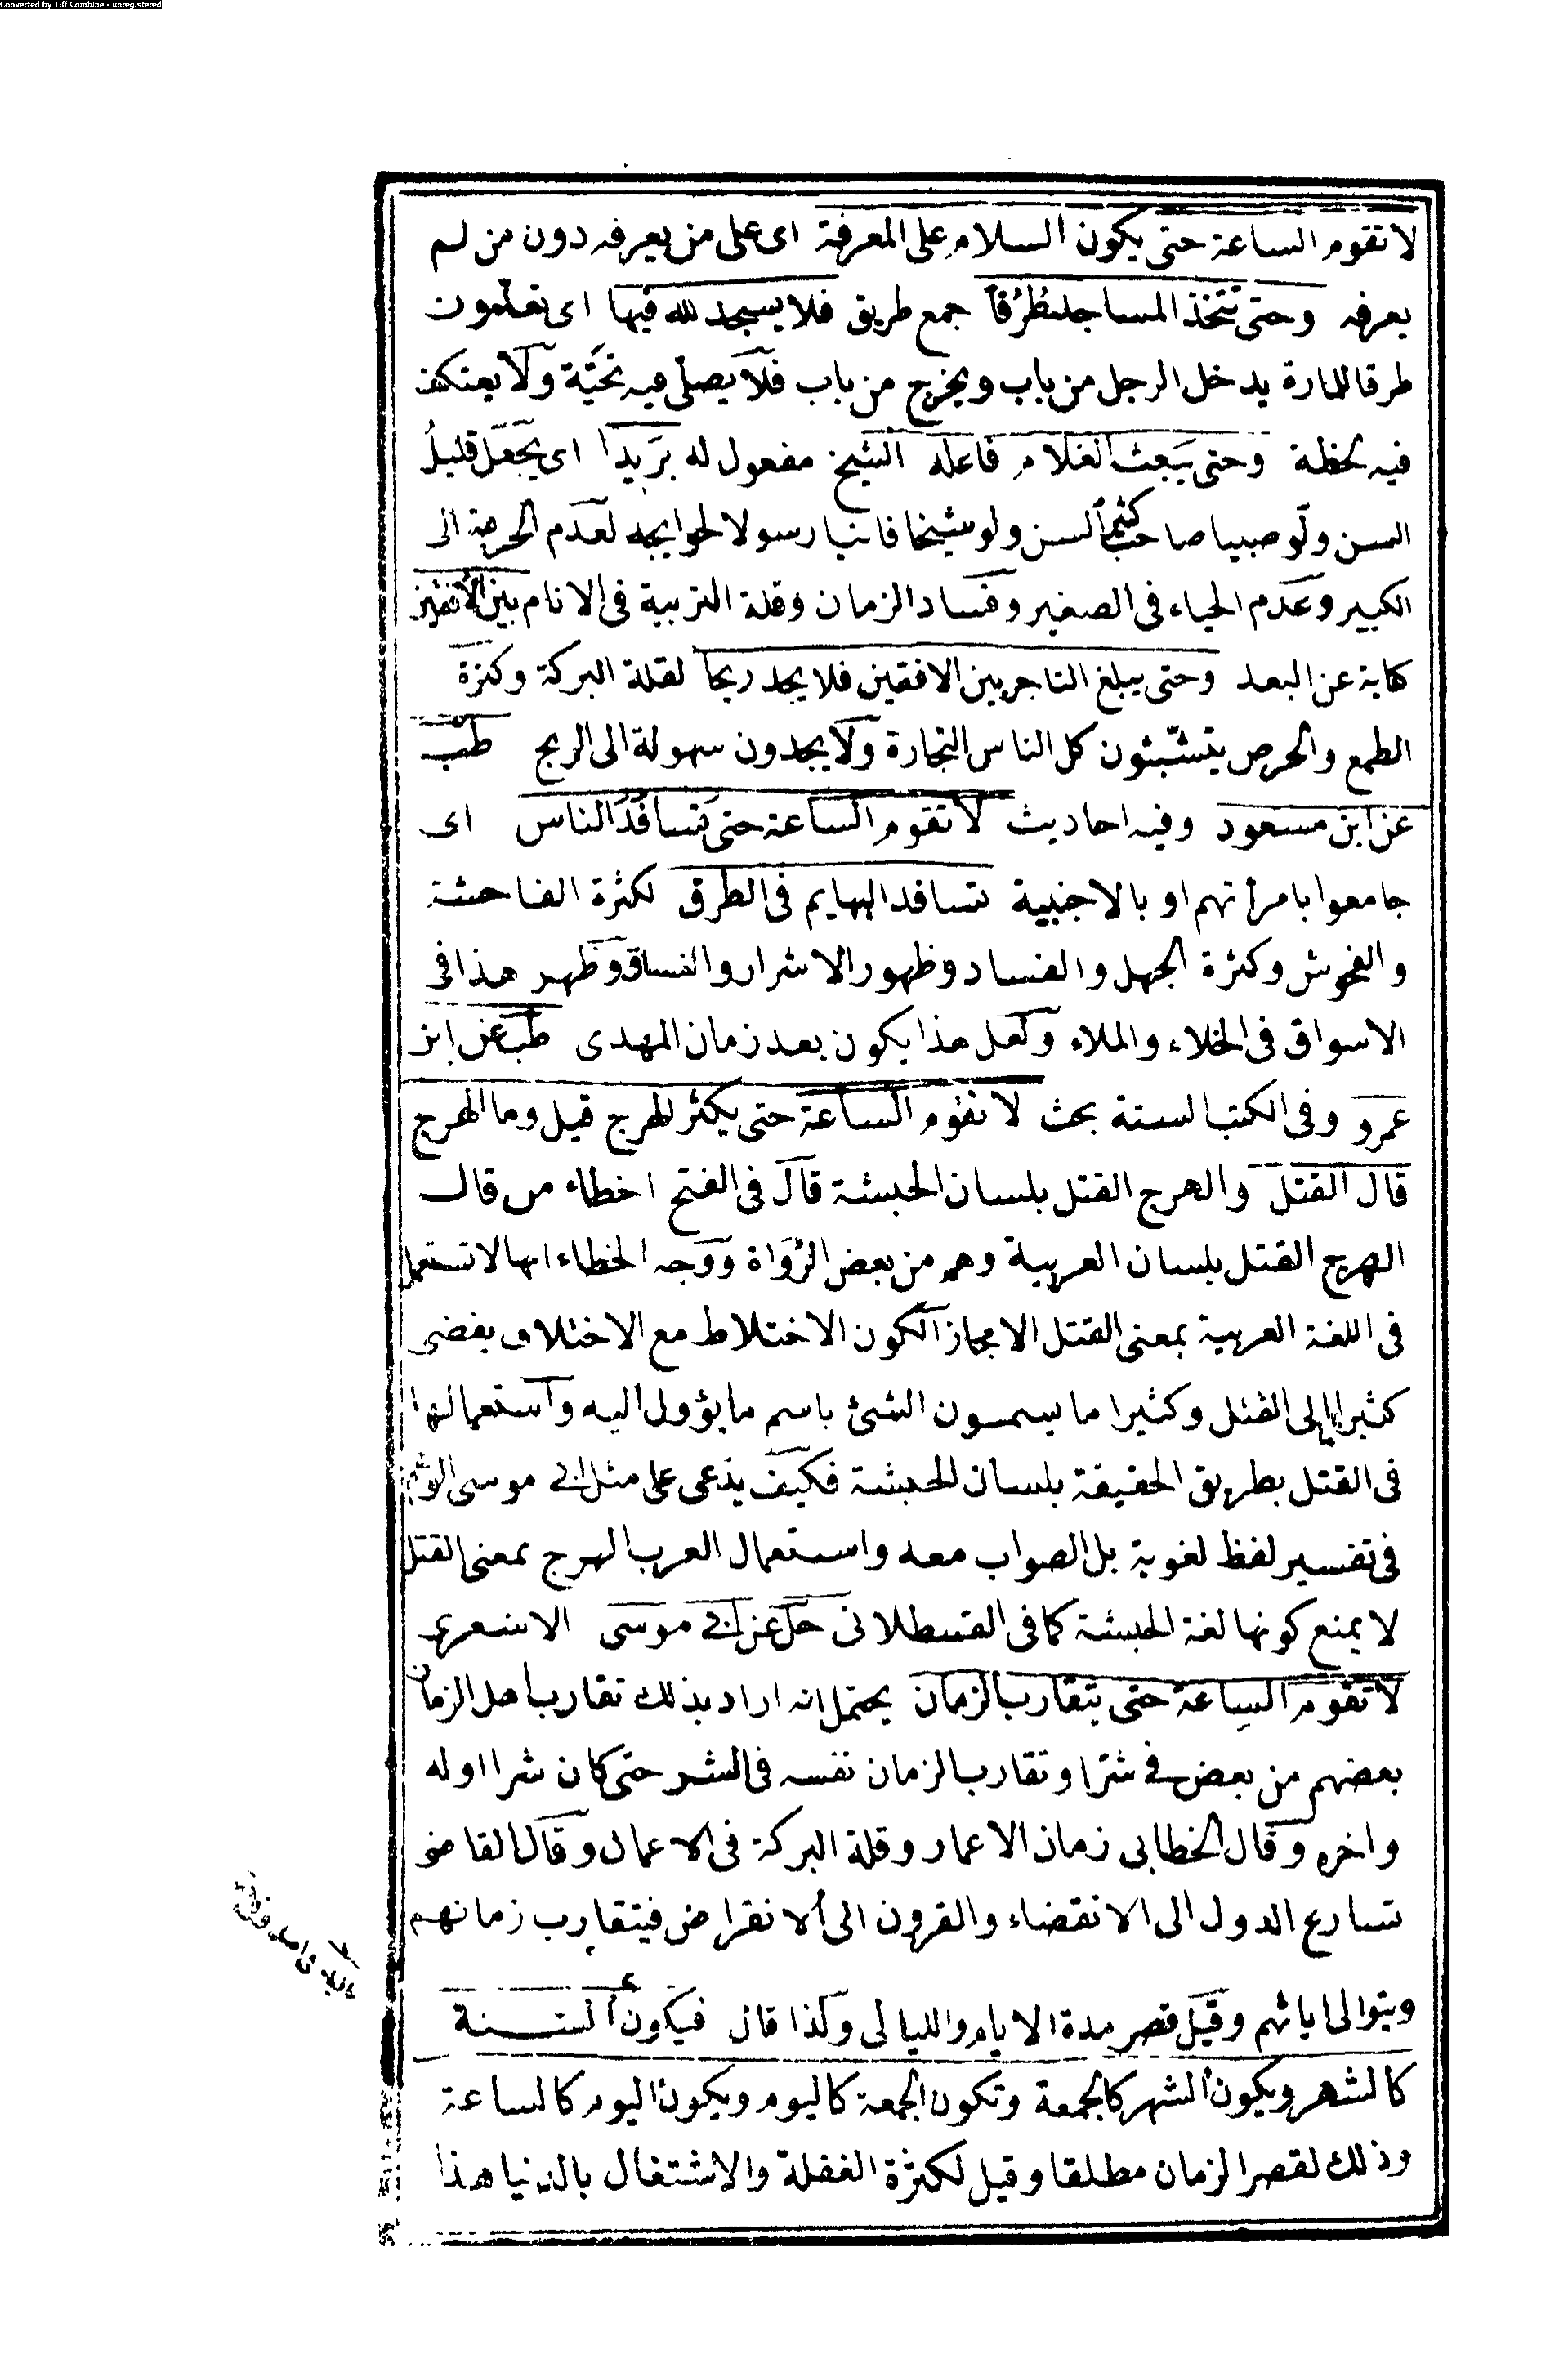 Converted by Tiff Combine - unregistered
لا تقوم الساعة حتى يكون السلام على المعرفة اى على من يعرفه دون من لم
يعرفه وحتى تتخذ المساجد طُرُقاً جمع طريق فلا يسجد لله فيها اى تعلمون
طرقا للمارة يدخل الرجل من باب ويخرج من باب فلا يصلى فيه تحيّة ولا يعتكف
فيه لحظة وحتى يَبعث الغلام فاعله الشيخ مفعول له بَريدا اى يجعل قليلُ
السن ولو صبيا صاحبَ كثير السن ولو شيخا فانيا رسولا لحوايجه لعدم الحرمة الى
الكبير وعدم الحياء فى الصغير وفساد الزمان وقلة التربية فى الانام بين الأفقين
كاية عن البعد وحتى يبلغ التاجر بين الافقين فلا يجد ربحا لقلة البركة وكثرة
الطمع والحرص يتشبّثون كل الناس التجارة ولا يجدون سهولة الى الربح طب
عن ابن مسعود وفيه احاديث لا تقوم الساعة حتى تَسافَدَ الناس اى
جامعوا بامرأتهم او بالاجنبية تسافد البهايم فى الطرق لكثرة الفاحشة
والفحوش وكثرة الجهل والفساد وظهور الاشرار والفساق وظهر هذا فى
الاسواق فى الخلاء والملاء ولعل هذا يكون بعد زمان المهدى طب عن ابن
عمرو وفى الكتب الستة بحث لا تقوم الساعة حتى يكثر الهرج قيل وما الهرج
قال القتل والهرج القتل بلسان الحبشة قال فى الفتح اخطاء من قال
الهرج القتل بلسان العربية وهم من بعض الرُوَاة ووجه الخطاء انها لا تستعمل
فى اللغة العربية بمعنى القتل الا مجازا لكون الاختلاط مع الاختلاف يفضى
كثيرا الى القتل وكثيرا ما يسمون الشئ باسم ما يؤول اليه واستعمالها
فى القتل بطريق الحقيقة بلسان الحبشة فكيف يدعى على مثل ابى موسى الوهم
فى تفسير لفظ لغوية بل الصواب معه واستعمال العرب الهرج بمعنى القتل
لا يمنع كونها لغة الحبشة كما فى القسطلانى حل عن ابى موسى الاشعرى
لا تقوم الساعة حتى يتقارب الزمان يحتمل انه اراد بذلك تقارب اهل الزمان
بعضهم من بعض فى شرّ او تقارب الزمان نفسه فى الشر حتى كان شرا اوله
واخره وقال الخطابى زمان الاعمار وقلة البركة فى الاعمال وقال القاضى
تسارع الدول الى الانقضاء والقرون الى الانقراض فيتقارب زمانهم
ويتوالى ايامهم وقيل قصر مدة الايام والليالى ولذا قال فيكون السنة
كالشهر ويكون الشهر كالجمعة وتكون الجمعة كاليوم ويكون اليوم كالساعة
وذلك لقصر الزمان مطلقا وقيل لكثرة الغفلة والاشتغال بالدنيا هذا